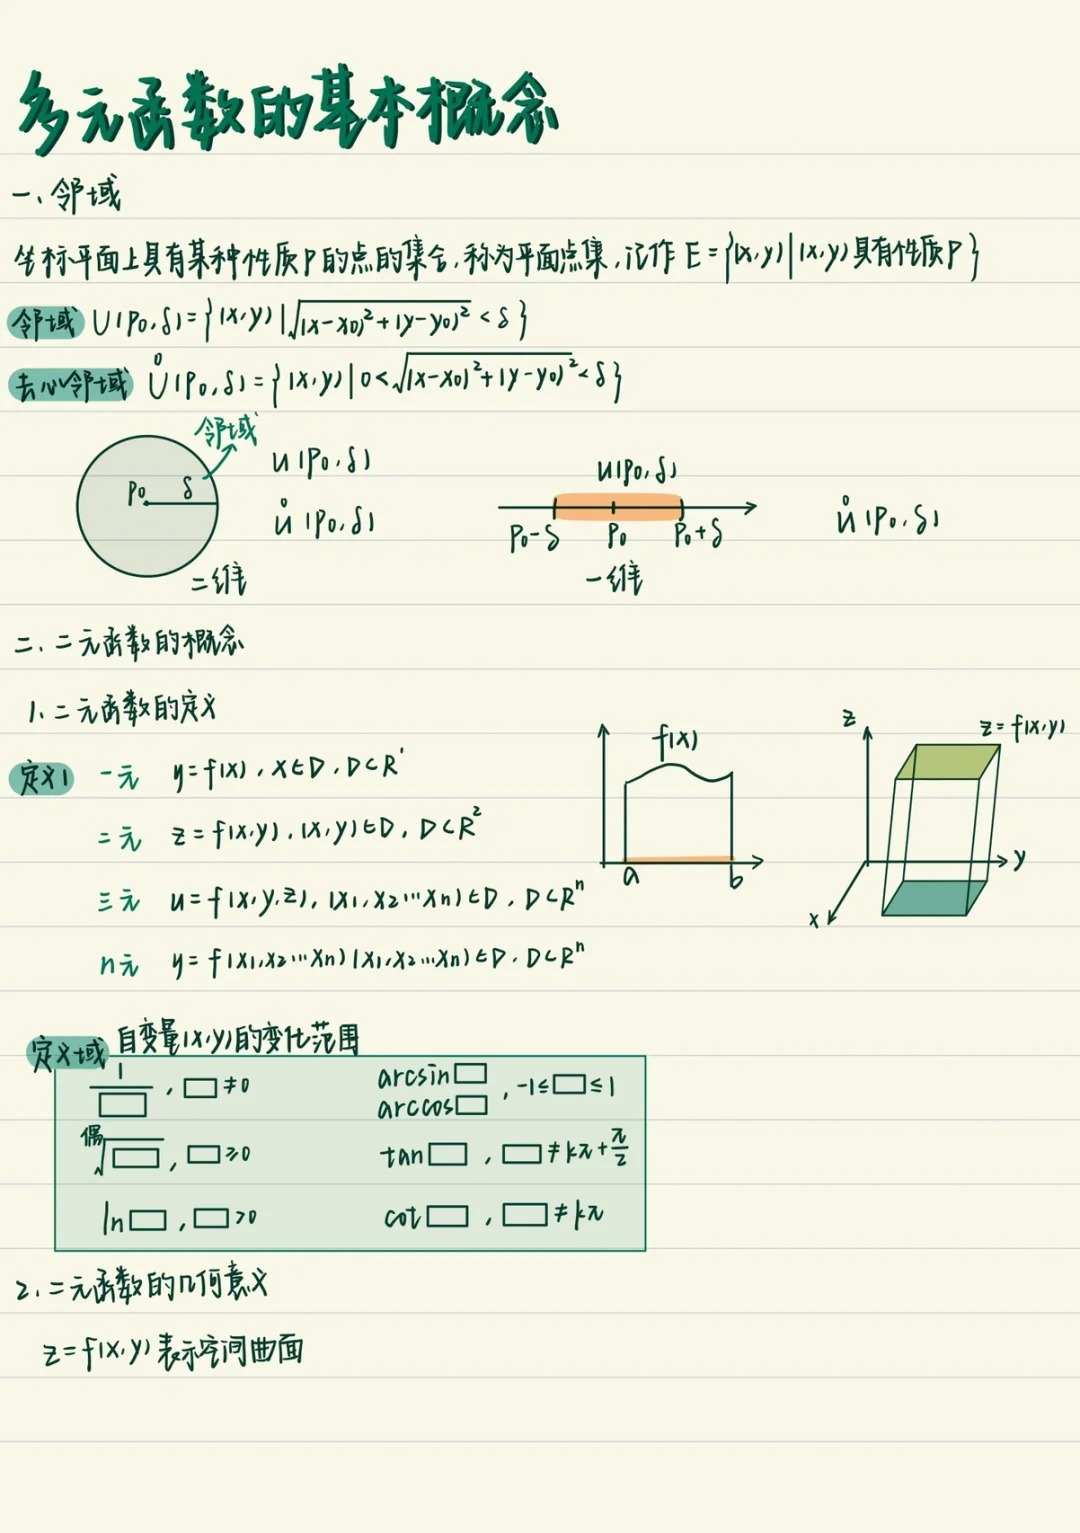 多元函数的基本概念
一、邻域
坐标平面上具有某种性质P的点的集合,称为平面点集,记作 E={(x,y)|(x,y)具有性质P}
邻域 U(P₀,δ)={(x,y)|√((x-x₀)²+(y-y₀)²)<δ}
去心邻域 Ů(P₀,δ)={(x,y)|0<√((x-x₀)²+(y-y₀)²)<δ}
邻域
P₀ δ
二维
U(P₀,δ)
Ů(P₀,δ)
U(P₀,δ)
P₀-δ P₀ P₀+δ
一维
Ů(P₀,δ)
二、二元函数的概念
1、二元函数的定义
定义1 一元 y=f(x),x∈D,D⊂R¹
二元 z=f(x,y),(x,y)∈D,D⊂R²
三元 u=f(x,y,z),(x₁,x₂…xₙ)∈D,D⊂Rⁿ
n元 y=f(x₁,x₂…xₙ)(x₁,x₂…xₙ)∈D,D⊂Rⁿ
f(x)
a b
z
z=f(x,y)
y
x
定义域 自变量(x,y)的变化范围
1/□,□≠0
arcsin□
arccos□ ,-1≤□≤1
偶√□,□≥0
tan□,□≠kπ+π/2
ln□,□>0
cot□,□≠kπ
2、二元函数的几何意义
z=f(x,y)表示空间曲面